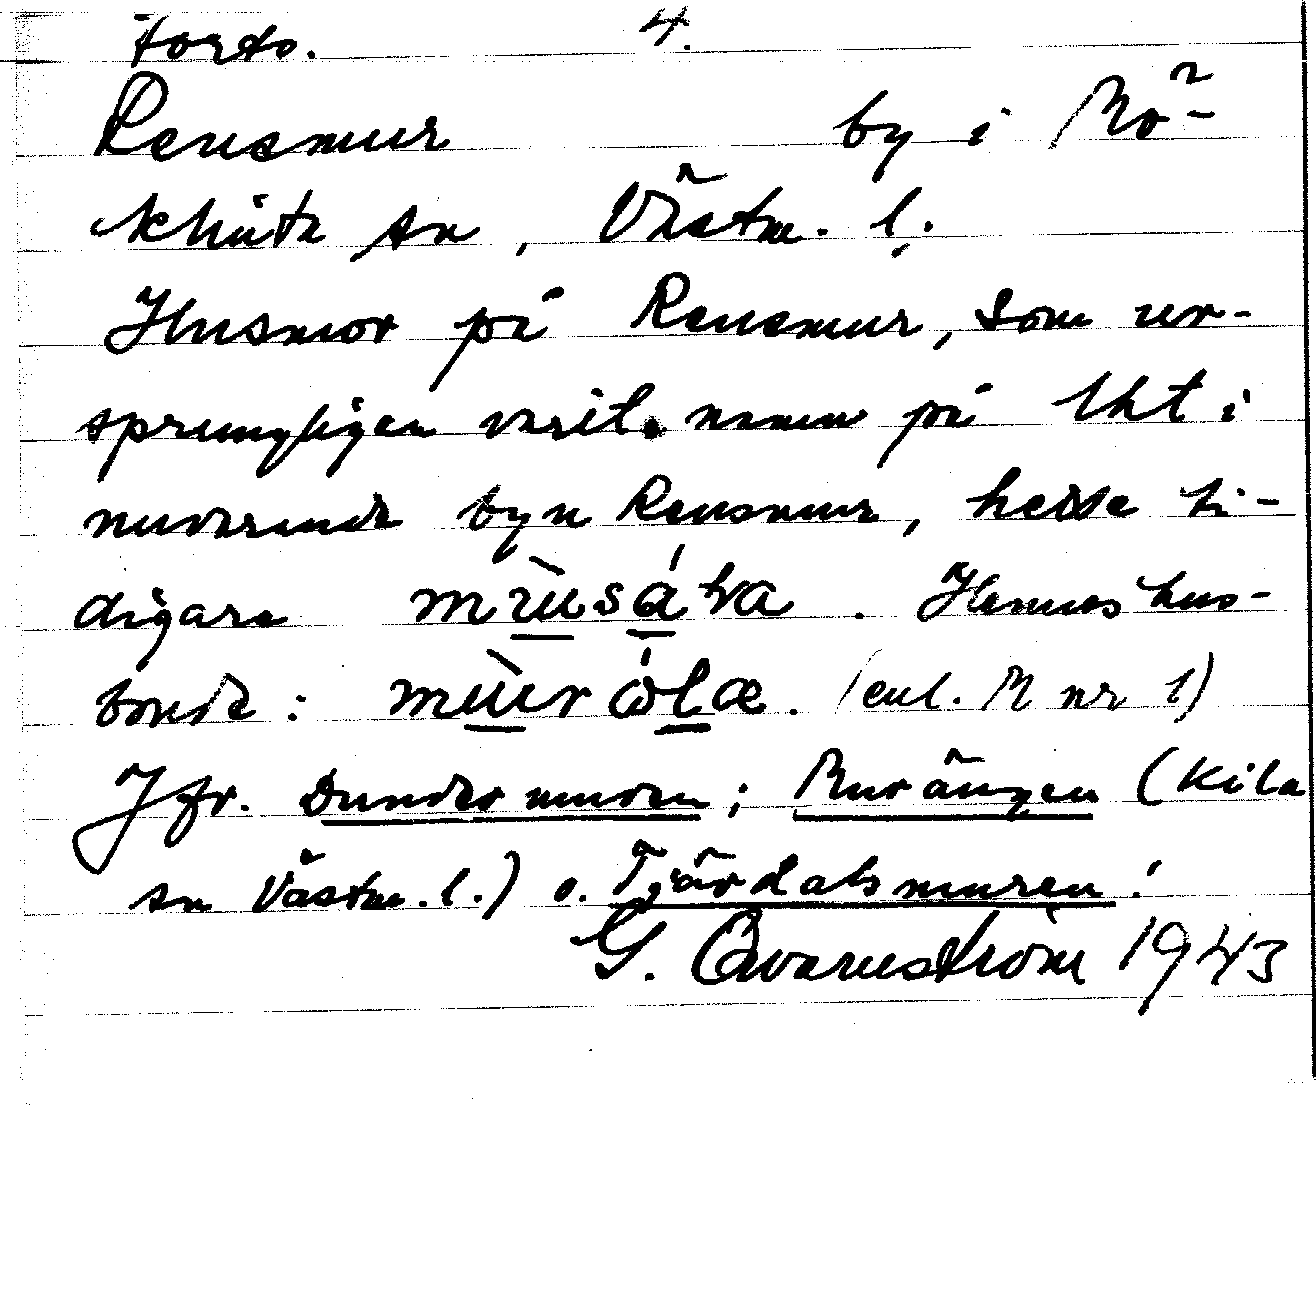 Forts. 4.
Rensmur by i Mö-
klinta sn, Västm. l.
Husmor på Rensmur, som ur-
sprungligen varit namn på lht i
nuvarande byn Rensmur, hette ti-
digare mùusáva. Hennes hus-
bonde: mùur ólα. (enl. M nr 1)
Jfr. Dundermuren; Murängen (Kila
sn Västm. l.) o. Tjärdalsmuren!
G. Qvarnström 1943